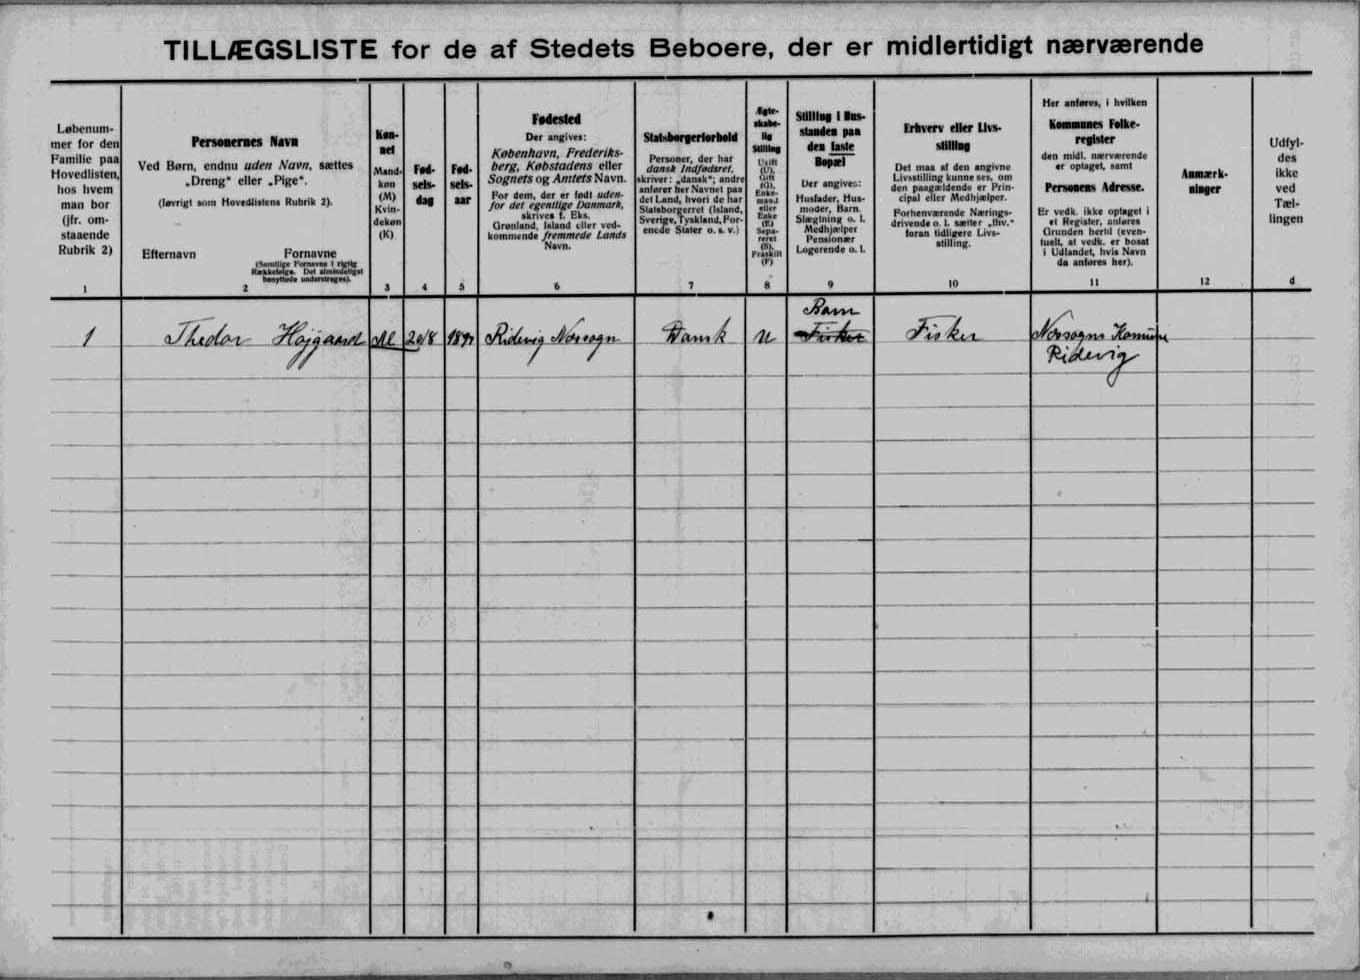 TILLÆGSLISTE for de af Stedets Beboere, der er midlertidigt nærværende
Løbenum-
mer for den
Familie paa
Hovedlisten,
hos hvem
man bor
(jfr. om-
staaende
Rubrik 2)
1
Personernes Navn
Ved Børn, endnu uden Navn, sættes
„Dreng“ eller „Pige“.
(Iøvrigt som Hovedlistens Rubrik 2).
Efternavn Fornavne
(Samtlige Fornavne i rigtig
Rækkefølge. Det almindeligst
benyttede understreges).
2
Køn-
net
Mand-
køn
(M)
Kvin-
dekøn
(K)
3
Fød-
sels-
dag
4
Fød-
sels-
aar
5
Fødested
Der angives:
København, Frederiks-
berg, Købstadens eller
Sognets og Amtets Navn.
For dem, der er født uden-
for det egentlige Danmark,
skrives f. Eks.
Grønland, Island eller ved-
kommende fremmede Lands
Navn.
6
Statsborgerforhold
Personer, der har
dansk Indfødsret,
skriver: „dansk“; andre
anfører her Navnet paa
det Land, hvori de har
Statsborgerret (Island,
Sverige, Tyskland, For-
enede Stater o. s. v.)
7
Ægte-
skabe-
lig
Stilling
Ugift
(U),
Gift
(G),
Enke-
mand
eller
Enke
(E)
Sepa-
reret
(S),
Fraskilt
(F)
8
Stilling i Hus-
standen paa
den faste
Bopæl
Der angives:
Husfader, Hus-
moder, Barn.
Slægtning o. l.
Medhjælper
Pensionær
Logerende o. l.
9
Erhverv eller Livs-
stilling
Det maa af den angivne
Livsstilling kunne ses, om
den paagældende er Prin-
cipal eller Medhjælper.
Forhenværende Nærings-
drivende o. l. sætter „fhv.“
foran tidligere Livs-
stilling.
10
Her anføres, i hvilken
Kommunes Folke-
register
den midl. nærværende
er optaget, samt
Personens Adresse.
Er vedk. ikke optaget i
et Register, anføres
Grunden hertil (even-
tuelt, at vedk. er bosat
i Udlandet, hvis Navn
da anføres her).
11
Anmærk-
ninger
12
Udfyl-
des
ikke
ved
Tæl-
lingen
d
Barn
1 Thedor Højgaard M 20/8 Ridevig Norsogn Dansk U Fisker Fisker Norsogns Komune
Ridevig